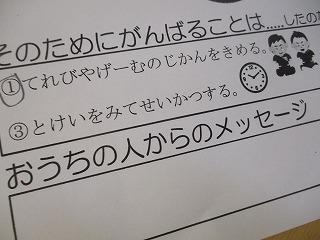 そのためにがんばることは……したのた
①てれびやげーむのじかんをきめる。
③とけいをみてせいかつする。
おうちの人からのメッセージ